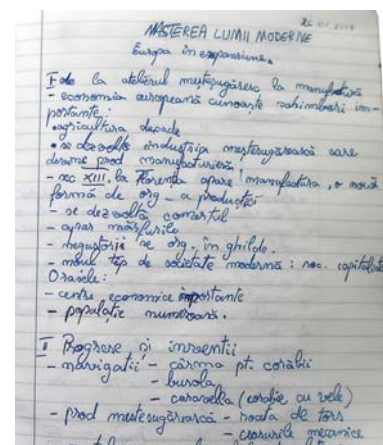 26.01.2019
NASTEREA LUMII MODERNE
Europa în expansiune.
I de la atelierul meșteșugăresc la manufactură
- economia europeană cunoaște schimbări im-
portante:
• agricultura decade
• se dezvoltă industria meșteșugărească care
devine prod manufacturieră.
- sec XIII, la Florența apare manufactura, o nouă
formă de org. a producției
- se dezvoltă comerțul
- apar mărfurile
- negustorii se org. în ghilde.
- noul tip de societate modernă: soc. capitalistă
Orașele:
- centre economice importante
- populație numeroasă.
II Progrese și invenții
- navigații - cârma pt. corăbii
- busola
- caravela (corabie cu vele)
- prod meșteșugărească - roata de tors
- ceasurile mecanice